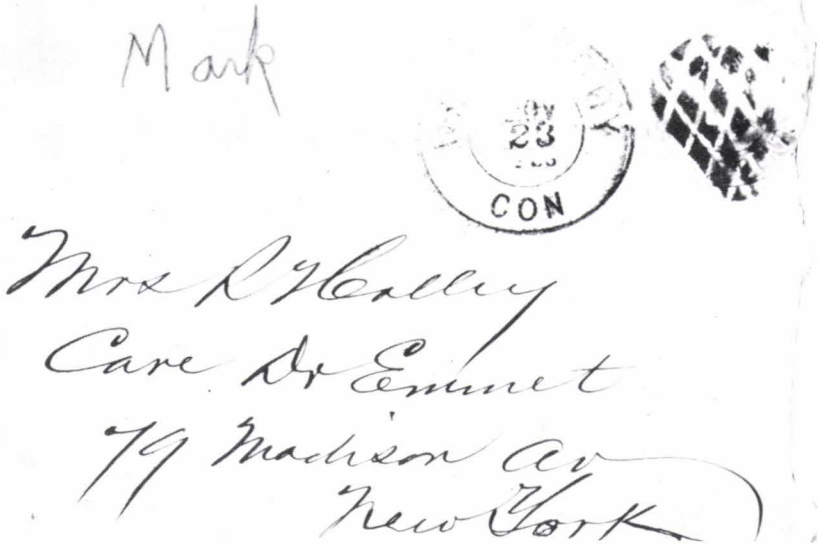 Mark
NOV
23
CON
Mrs R Holley
Care Dr Emmet
79 Madison Av
New York